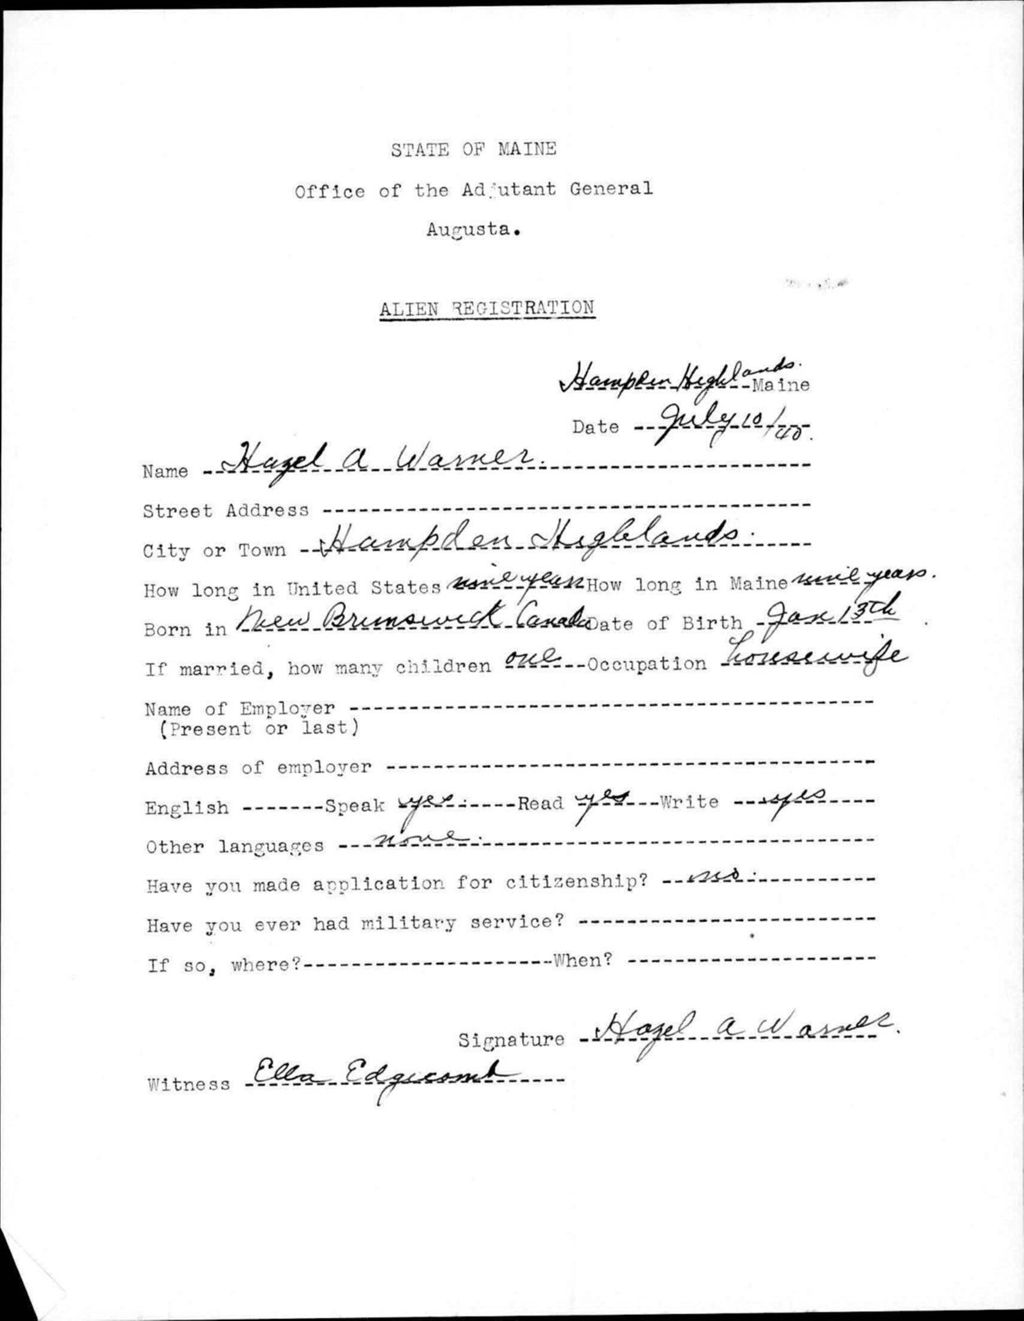 STATE OF MAINE
Office of the Adjutant General
Augusta.
ALIEN REGISTRATION
Hampden Highlands. Maine
Date July 10/40.
Name Hazel A Warner.
Street Address
City or Town Hampden Highlands.
How long in United States nine years How long in Maine nine years.
Born in New Brunswick Canada Date of Birth Jan 13th
If married, how many children one Occupation housewife
Name of Employer
(Present or last)
Address of employer
English Speak yes. Read yes Write yes
Other languages none.
Have you made application for citizenship? no.
Have you ever had military service?
If so, where? When?
Signature Hazel A Warner.
Witness Ella Edgecomb